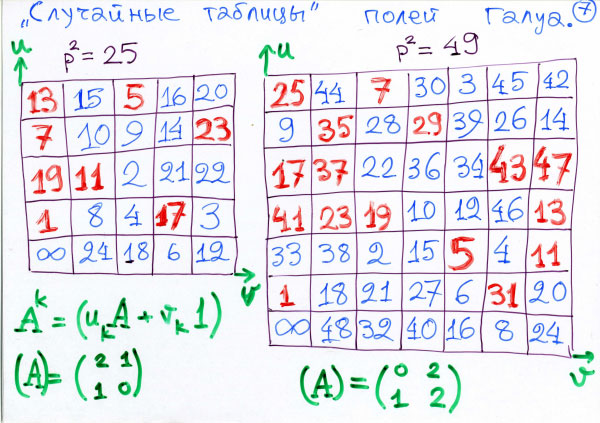 „Случайные таблицы" полей Галуа. 7
u p² = 25
u p² = 49
13 15 5 16 20
7 10 9 14 23
19 11 2 21 22
1 8 4 17 3
∞ 24 18 6 12
v
25 44 7 30 3 45 42
9 35 28 29 39 26 14
17 37 22 36 34 43 47
41 23 19 10 12 46 13
33 38 2 15 5 4 11
1 18 21 27 6 31 20
∞ 48 32 40 16 8 24
v
Aᵏ = (uₖA + vₖ1)
(A) = (2 1
1 0)
(A) = (0 2
1 2)